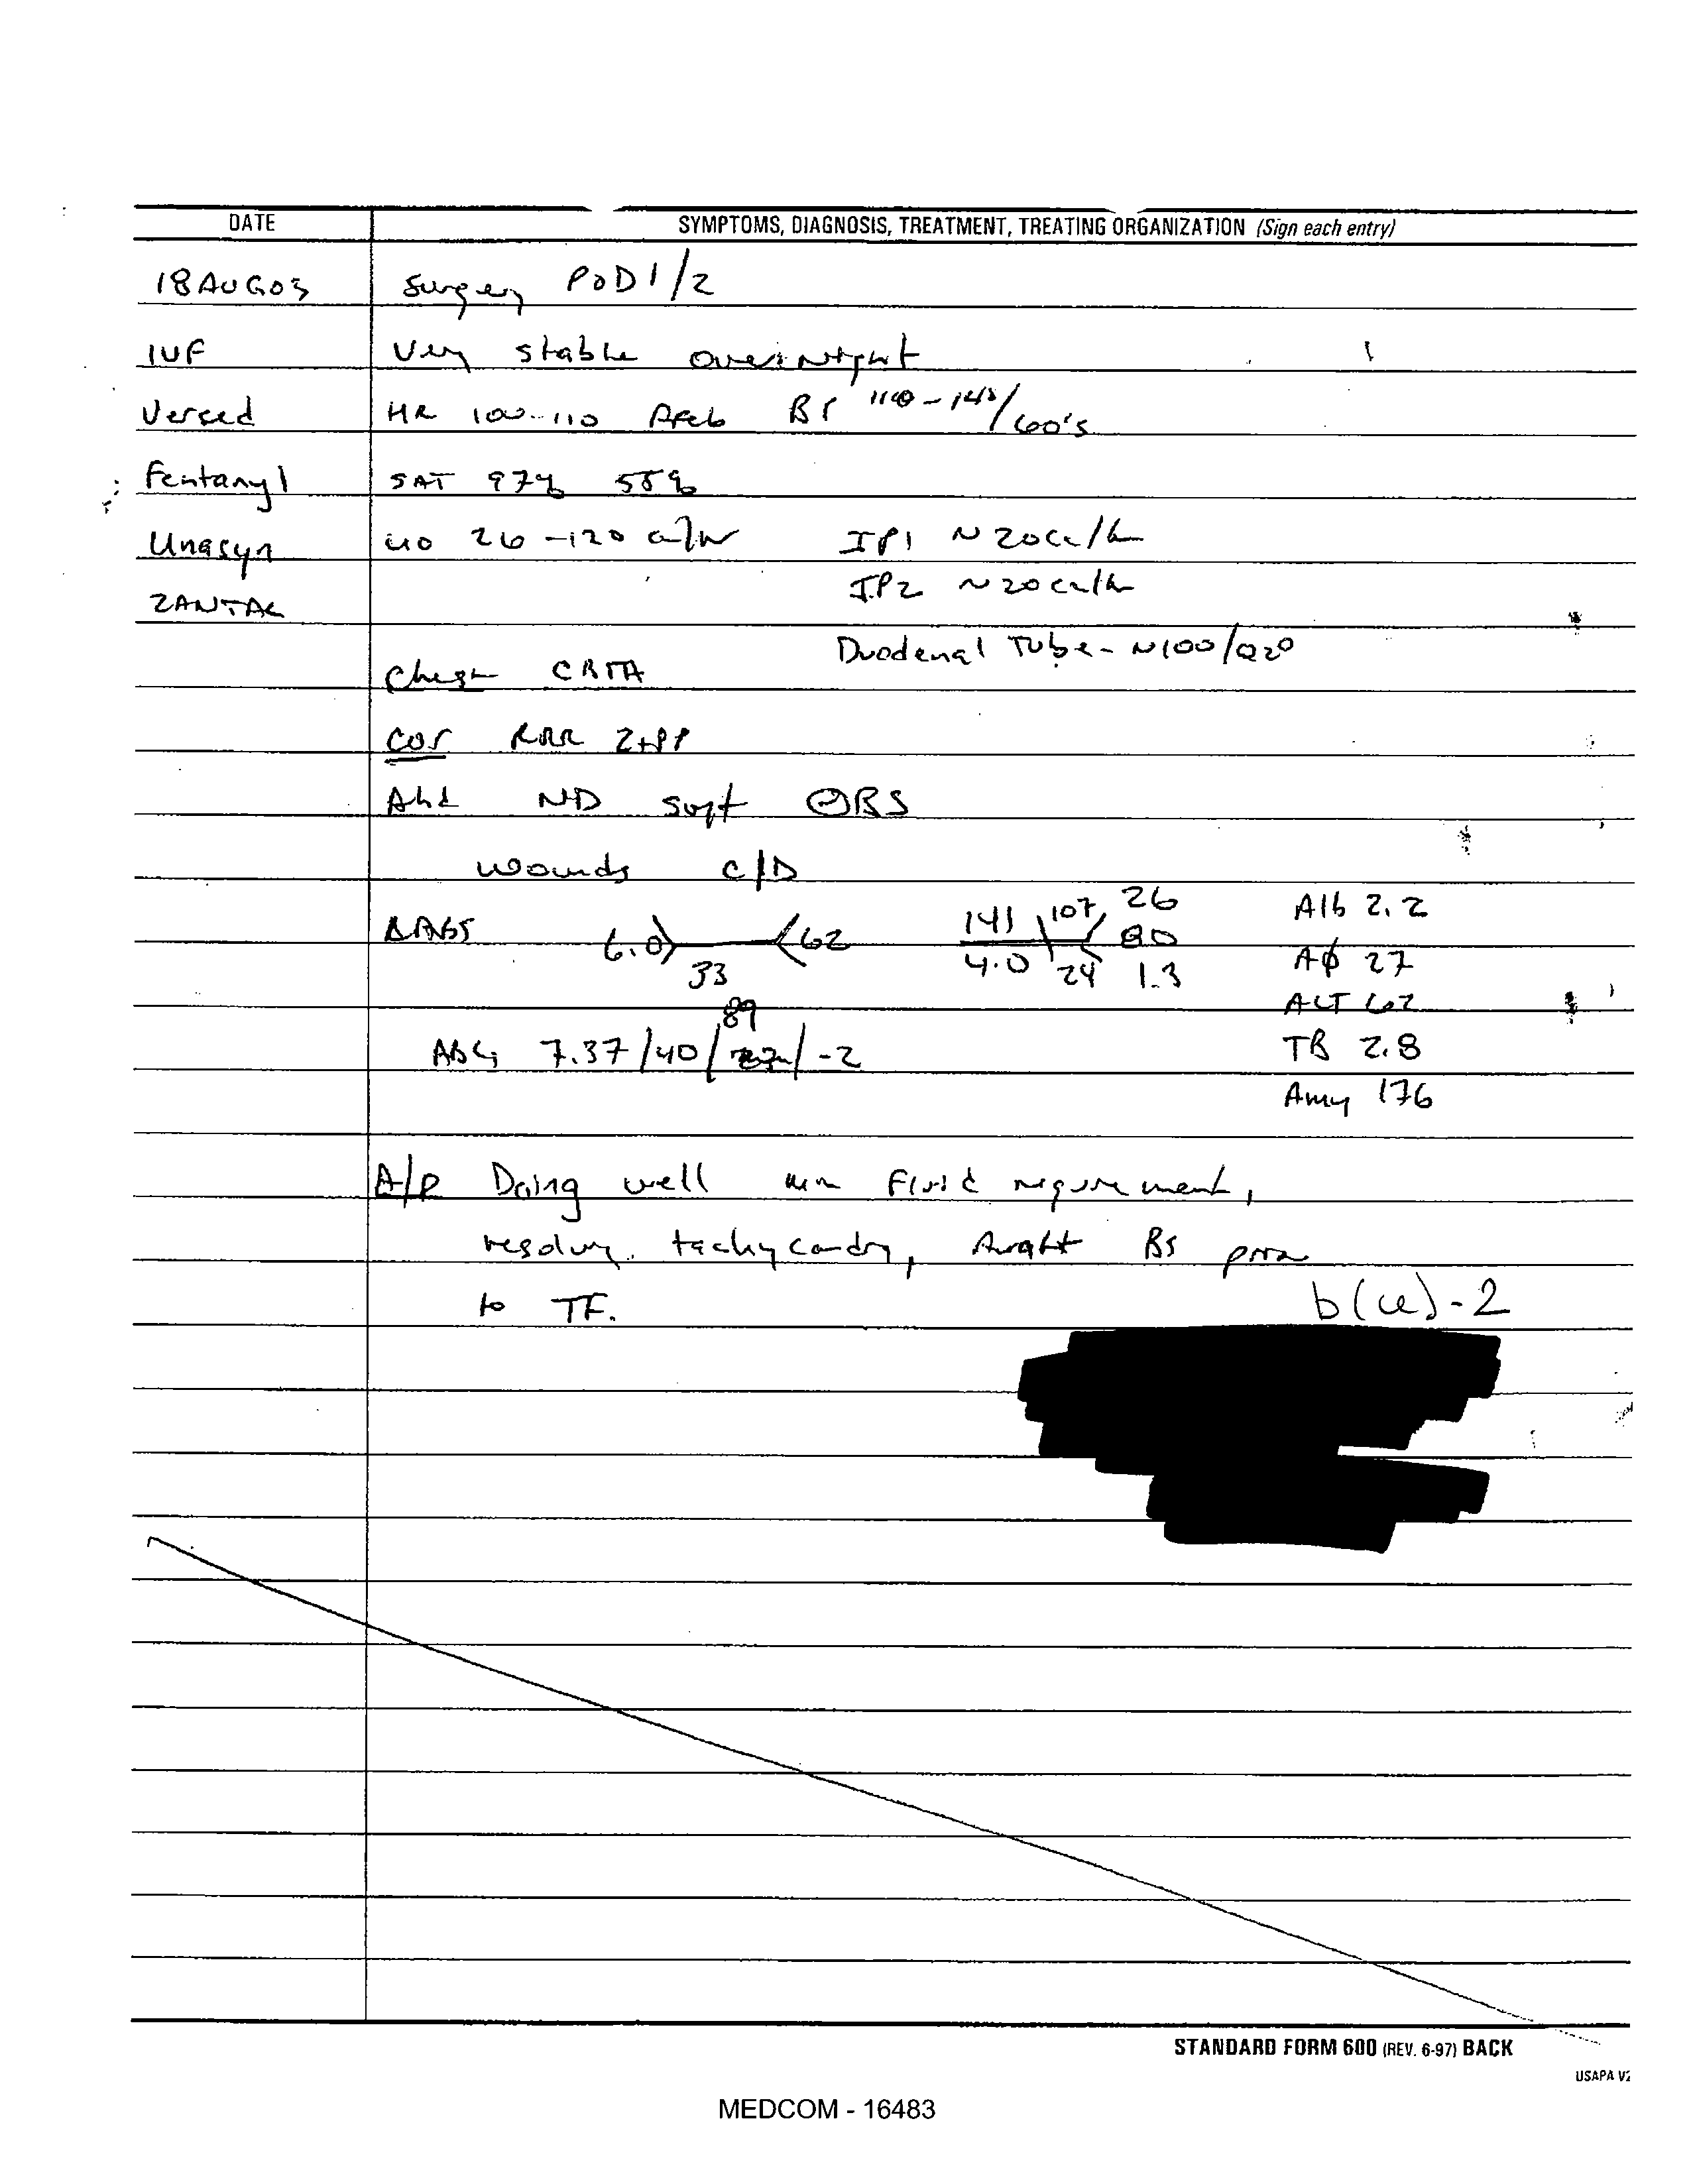 DATE SYMPTOMS, DIAGNOSIS, TREATMENT, TREATING ORGANIZATION (Sign each entry)
18AUG03 Surgery POD 1/2
IVF Very stable overnight
Versed HR 100-110 Afeb BP /60's
Fentanyl SAT 97%
Unasyn UO 26-120 cc/hr JP1 ~20cc/h
JP2 ~20cc/h
ZANTAC
Duodenal Tube- ~100/
Chest CBTA
Cor RRR 2+PP
Abd ND soft ⊖BS
wounds C/D
LABS 6.0 62 141 107 26 Alb 2.2
33 4.0 24 1.3 AΦ 27
ALT 62
89
ABG 7.37/40/ /-2 TB 2.8
Amy 176
A/P Doing well min Fluid requirement,
resolving tachycardia, Await BS prior
to TF.
b(6)-2
STANDARD FORM 600 (REV. 6-97) BACK
USAPA V2
MEDCOM - 16483